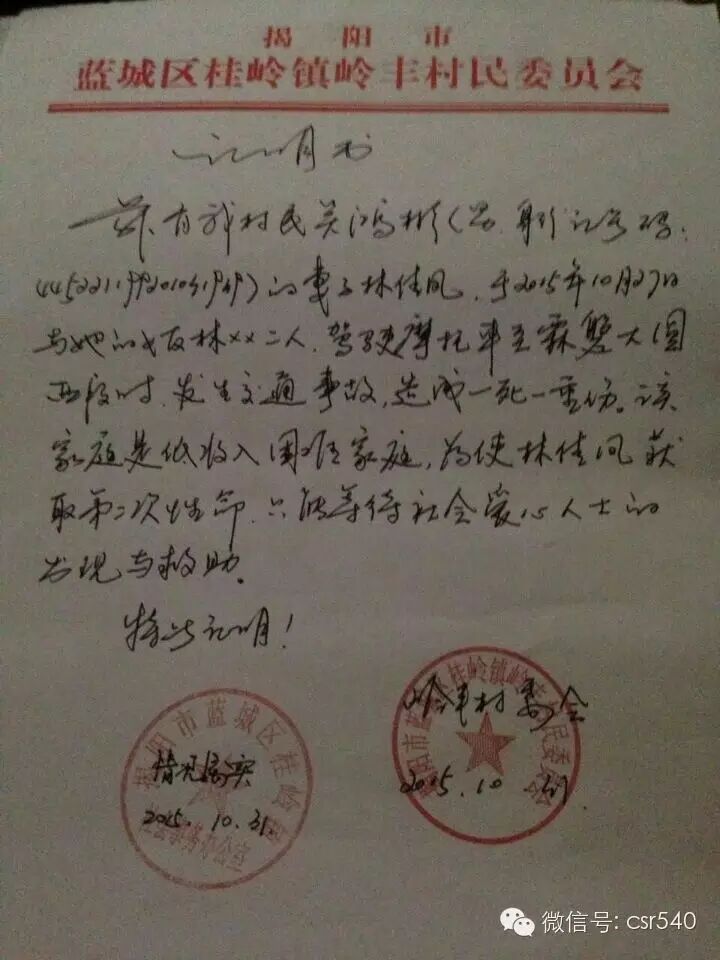 揭阳市
蓝城区桂岭镇岭丰村民委员会
证明书
兹有我村民吴鸿彬(男 身份证号码:
的妻子林佳凤，于2015年10月27日
与她的 林xx二人，驾驶摩托车至霖磐大圆
西段时，发生交通事故，造成一死一重伤。该
家庭是低收入困难家庭，为使林佳凤获
取第二次性命，只能等待社会爱心人士的
发现与救助。
特此证明！
岭丰村委会
2015.10
情况属实
2015.10.31.
揭阳市蓝城区桂岭镇
社会事务办公室
揭阳市蓝城区桂岭镇岭丰村民委员会
微信号: csr540